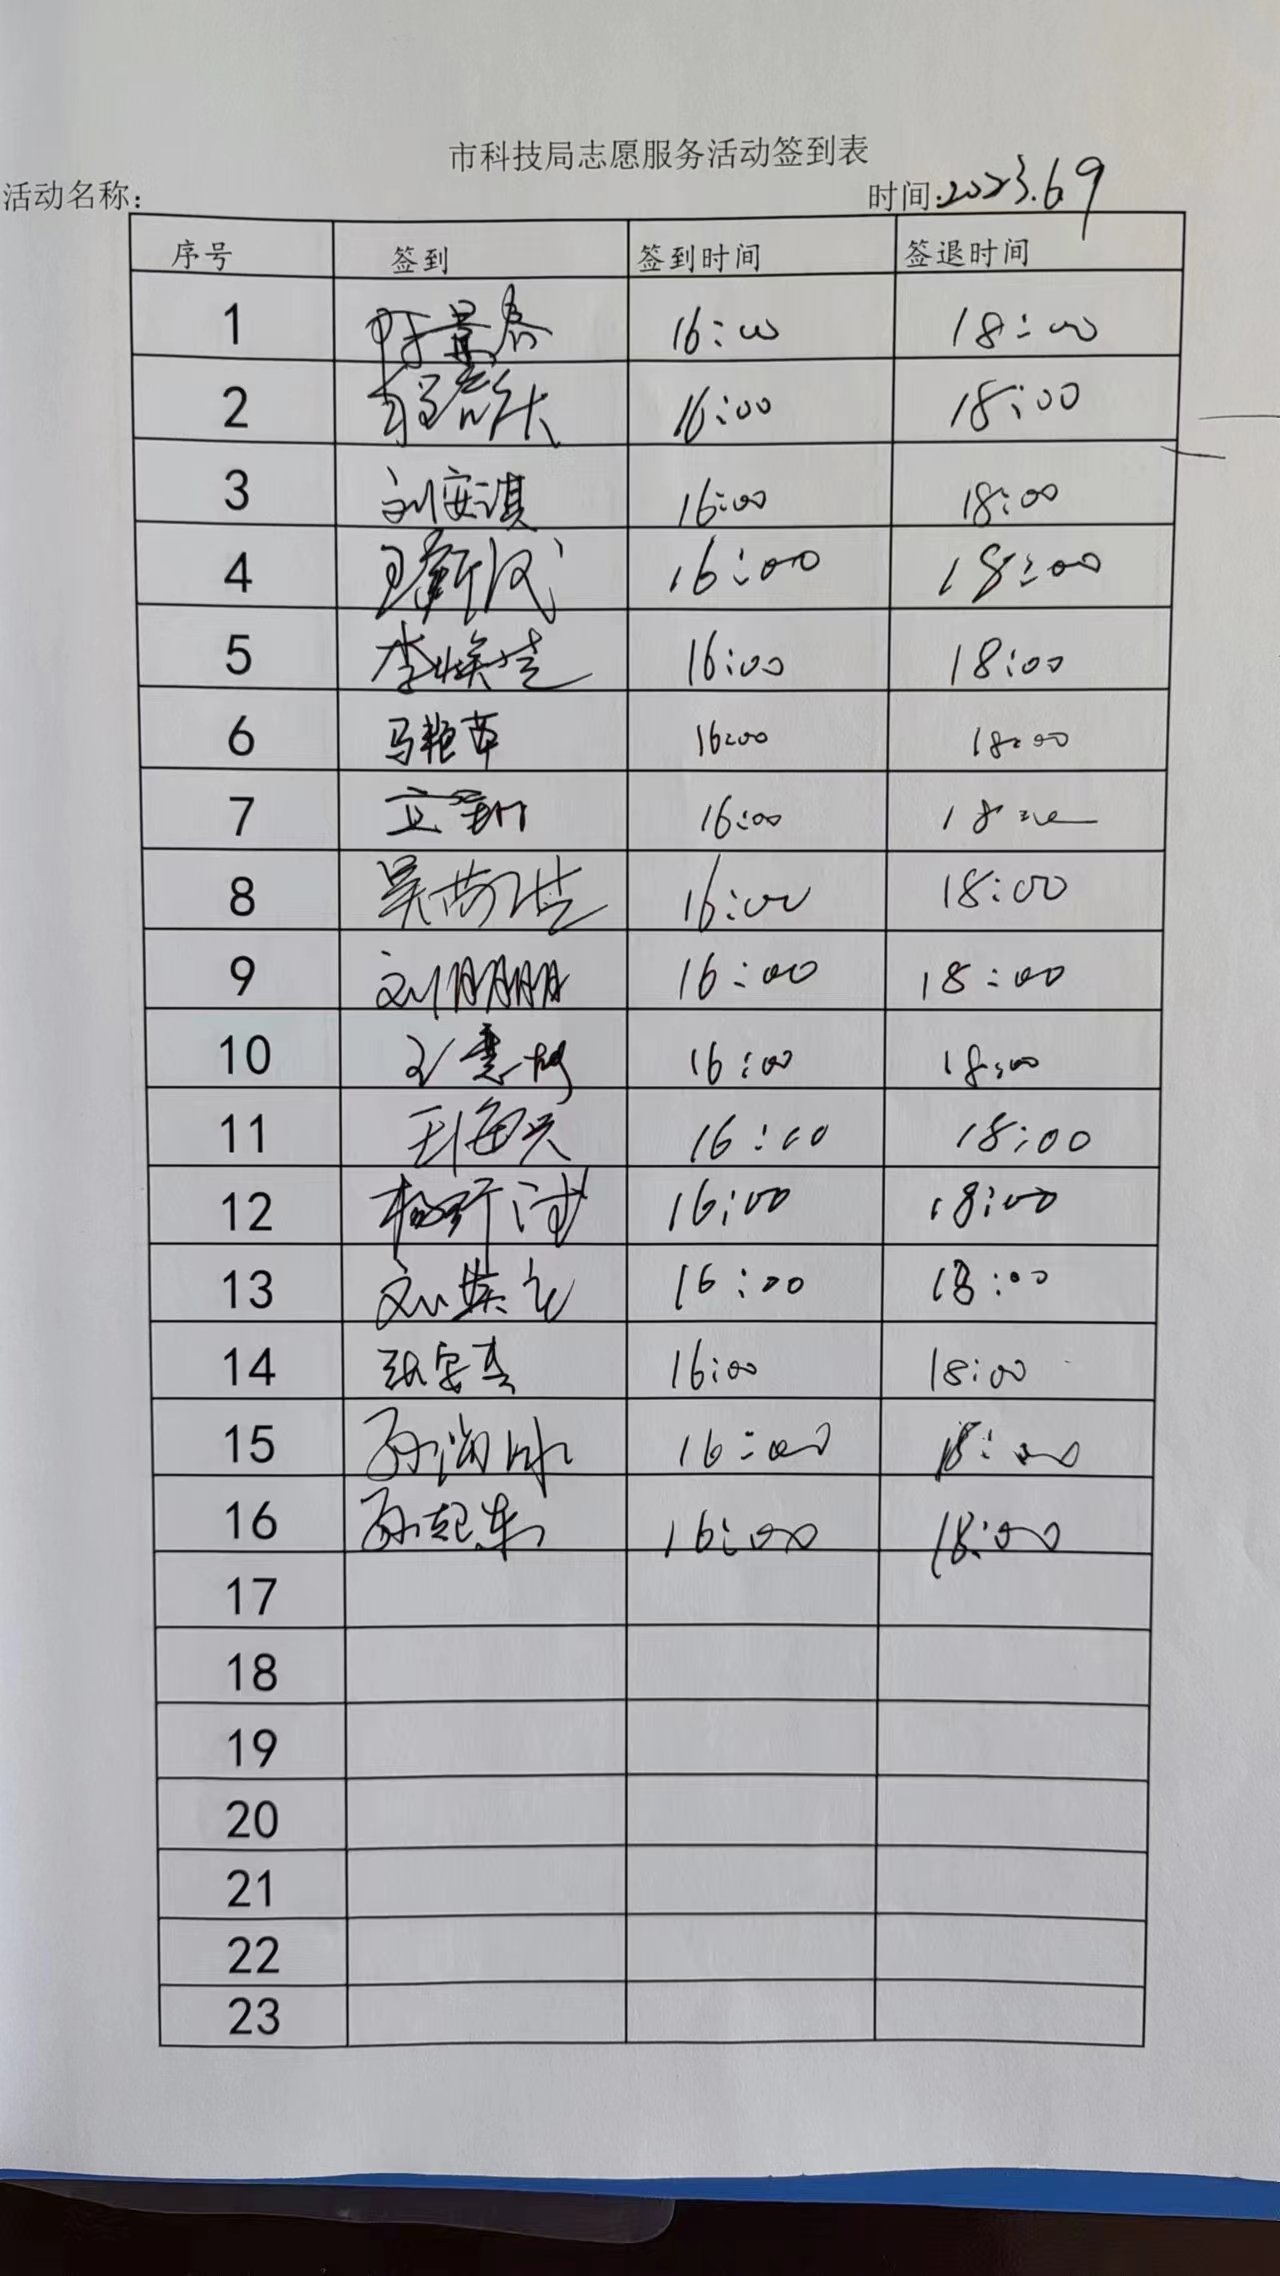 市科技局志愿服务活动签到表
活动名称: 时间:2023.6.9
序号 签到 签到时间 签退时间
1 16:00 18:00
2 16:00 18:00
3 刘安淇 16:00 18:00
4 16:00 18:00
5 李焕 16:00 18:00
6 马艳苹 16:00 18:00
7 16:00 18:00
8 吴尚 16:00 18:00
9 刘明明 16:00 18:00
10 王惠 16:00 18:00
11 王海兴 16:00 18:00
12 杨 16:00 18:00
13 刘 16:00 18:00
14 张安 16:00 18:00
15 孙 16:00 18:00
16 孙起东 16:00 18:00
17
18
19
20
21
22
23